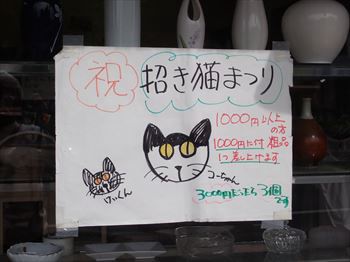 祝
招き猫まつり
1000円以上
の方
1000円に付粗品
1つ差し上げます
3000円だったら3個
です
けいくん
こーちゃん